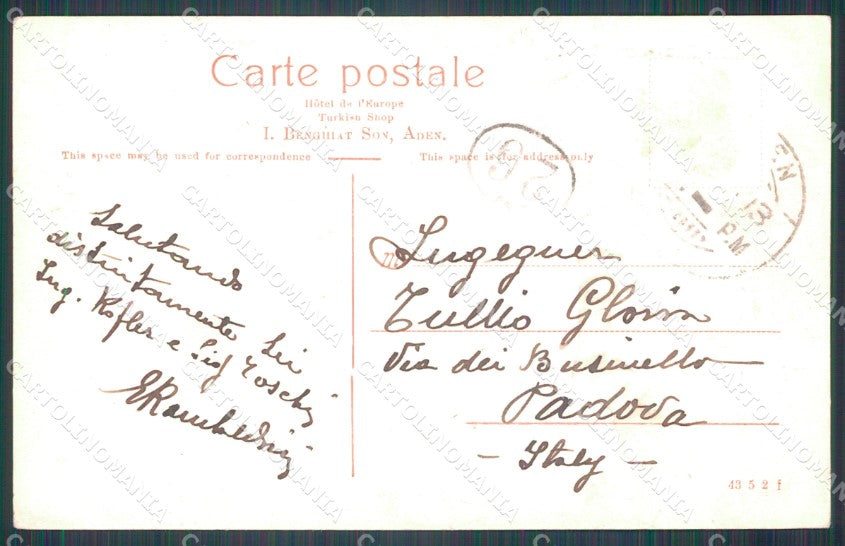 Carte postale
Hôtel de l'Europe
Turkish Shop
I. Benghiat Son, Aden.
This space may be used for correspondence
This space is for address only
26
13
PM
Salutando
distintamente Lei
Ing. Kofler e Sig
Ingegner
Tullio Gloria
Via dei Businello
Padova
- Italy -
43 5 2 f
CARTOLINOMANIA